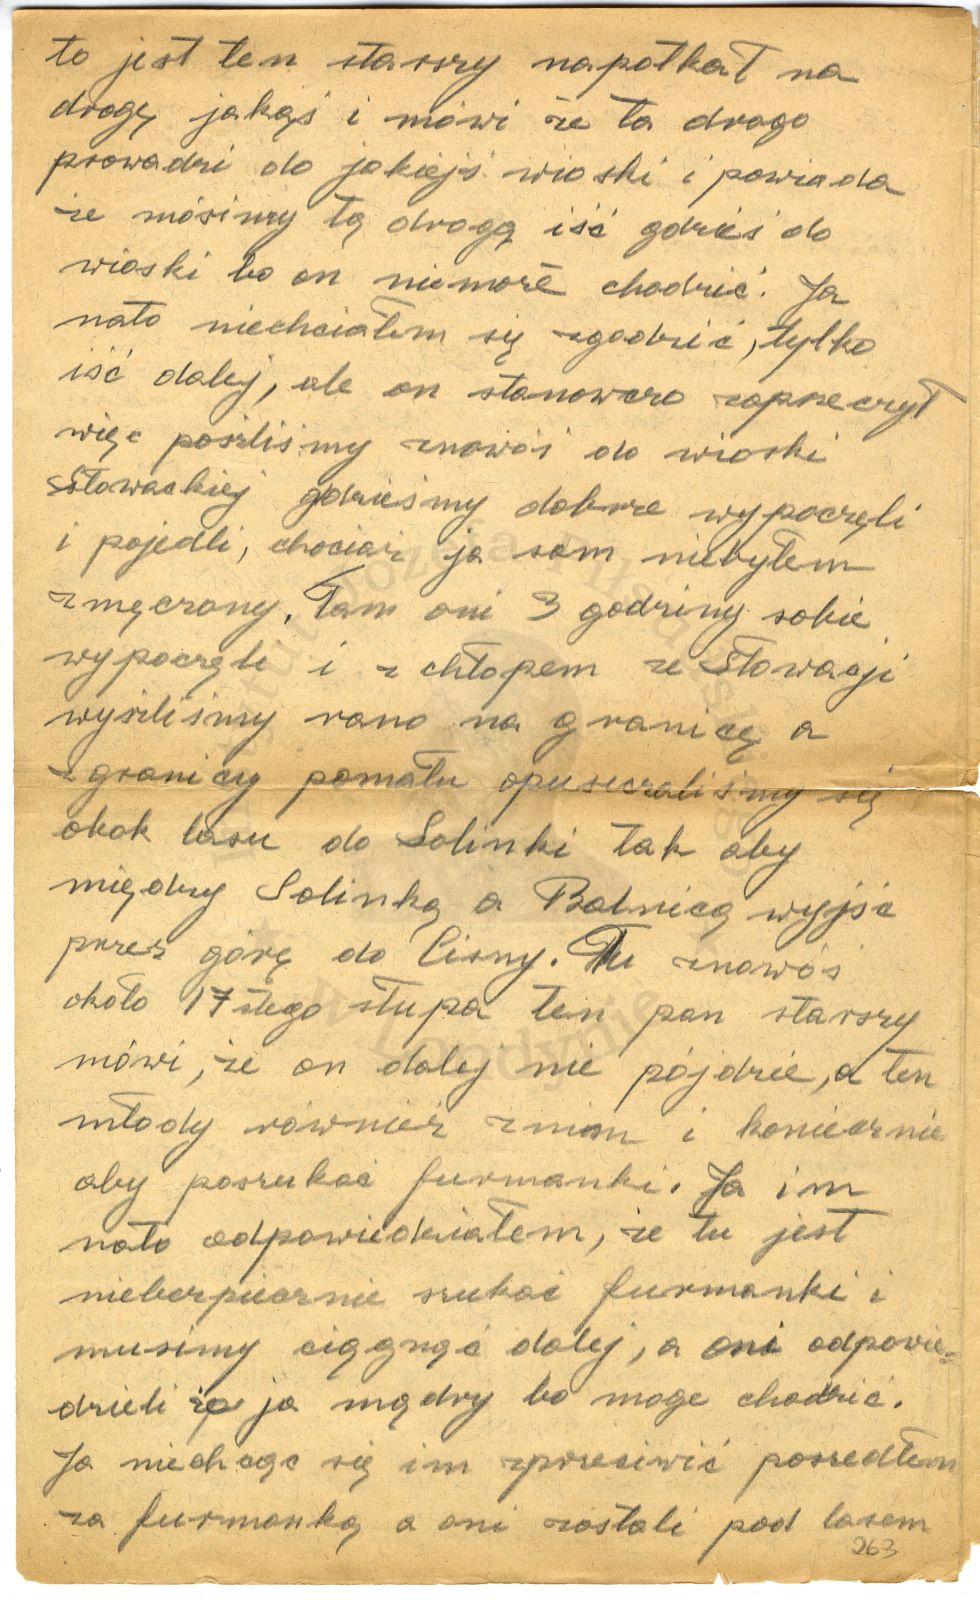 to jest ten starszy napotkał na
drogę jakąś i mówi że ta droga
prowadzi do jakiejś wioski i powiada
że mósimy tą drogą iść gdzieś do
wioski bo on niemoże chodzić. Ja
nato niechciałem się zgodzić, tylko
iść dalej, ale on stanowczo zaprzeczył
więc poszliśmy znowós do wioski
Słowackiej gdzieśmy dobrze wypoczęli
i pojedli, chociaż ja sam niebyłem
zmęczony. Tam oni 3 godziny sobie
wypoczęli i z chłopem ze Słowacji
wyszliśmy rano na granicę a
zgranicy pomału opuszczaliśmy się
obok lasu do Solinki tak aby
między Solinką a Balnicą wyjść
przez górę do Cisny. Tu znowós
około 17stego słupa ten pan starszy
mówi, że on dalej nie pójdzie, a ten
młody również z nim i koniecznie
aby poszukać furmanki. Ja im
nato odpowiedziałem, że tu jest
niebezpiecznie szukać furmanki i
musimy ciągnąć dalej, a oni odpowie=
dzieli że ja mądry bo moge chodzić.
Ja niechcąc się im sprzeciwić poszedłem
za furmanką a oni zostali pod lasem
263
Instytut Józefa Piłsudskiego
w Londynie